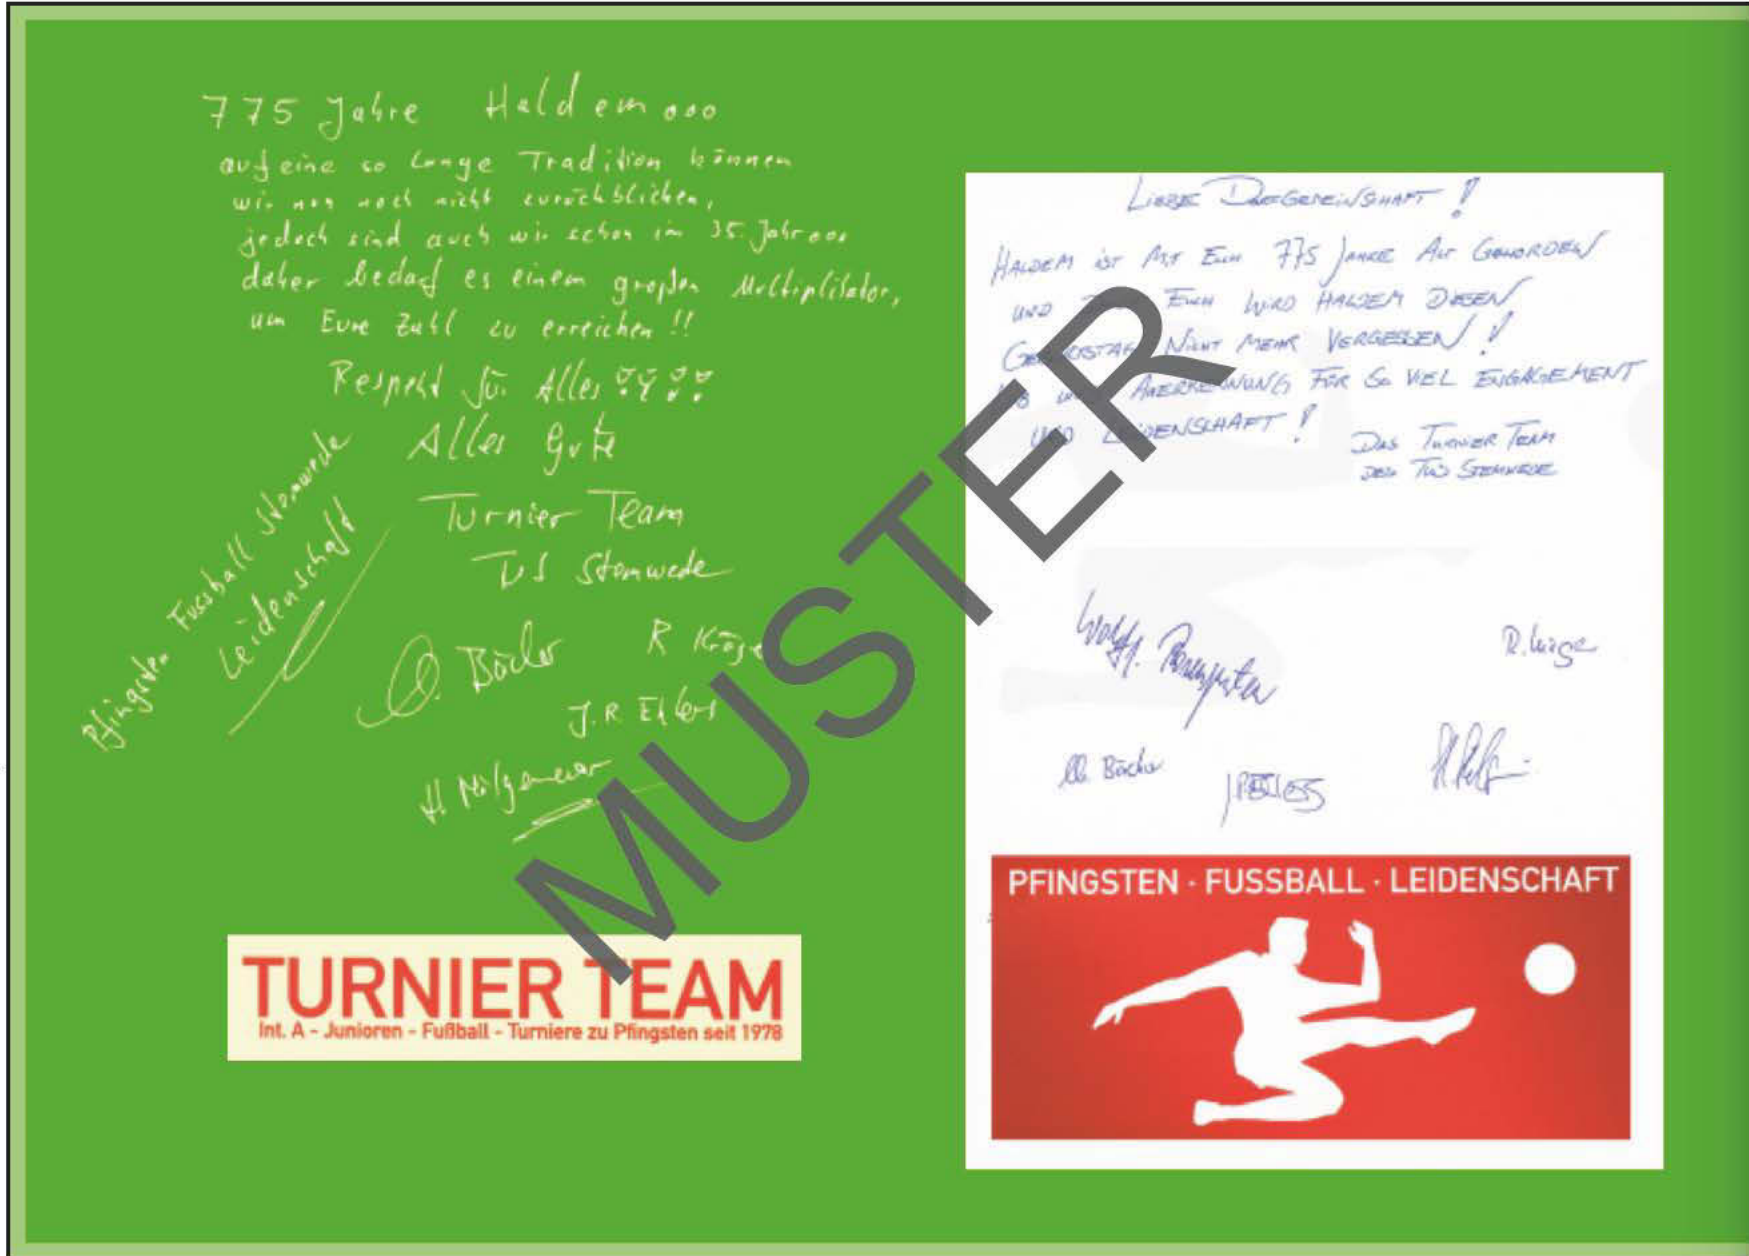 775 Jahre Haldem ooo
auf eine so lange Tradition können
wir nun noch nicht zurückblicken,
jedoch sind auch wir schon im 35. Jahr ooo
daher bedarf es einem großen Multiplikator,
um Eure Zahl zu erreichen !!
Respekt für Alles !!!!
Alles Gute
Turnier Team
TUS Stemwede
Pfingsten Fussball Stemwede
Leidenschaft
J.R. Ehlers
TURNIER TEAM
Int. A - Junioren - Fußball - Turniere zu Pfingsten seit 1978
LIEBE DORFGEMEINSCHAFT !
HALDEM IST MIT EUCH 775 JAHRE ALT GEWORDEN
UND EUCH WIRD HALDEM DIESEN
GEBURTSTAG NICHT MEHR VERGESSEN !
ANERKENNUNG FÜR SO VIEL ENGAGEMENT
UND LEIDENSCHAFT !
DAS TURNIER TEAM
DES TUS STEMWEDE
PFINGSTEN · FUSSBALL · LEIDENSCHAFT
MUSTER